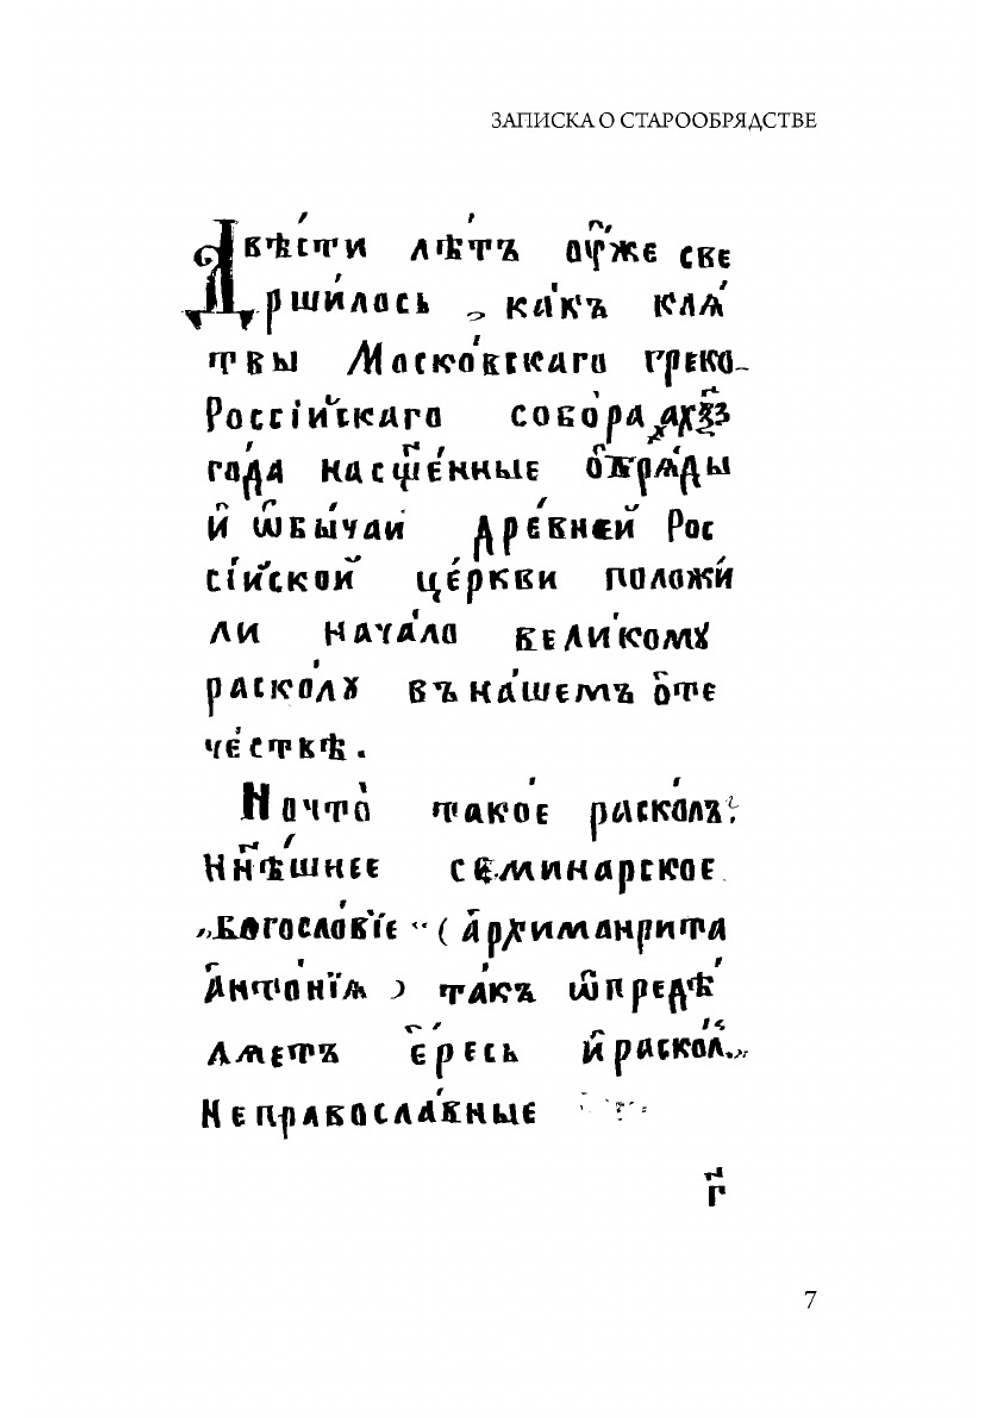 ЗАПИСКА О СТАРООБРЯДСТВЕ
Двѣ́сти лѣ́тъ ѹ҆́же све
рши́лось, ка́къ кля́
твы Моско́вскаго греко-
Россі́йскаго собо́ра ҂ахѯ҃з
го́да на сщ҃е́нные ѻ҆бря́ды
и҆ ѡ҆бы́чаи дре́вней Рос
сі́йской це́ркви положи́
ли нача́ло вели́кому
раско́лу въ на́шемъ ѻ҆те
че́ствѣ.
Но что̀ тако́е раско́лъ?
Ннѣ҃́шнее семинарское
„Богосло́віе“ (а҆рхимандрита
А҆нто́нїѧ) та́къ ѡ҆предѣ́
ляетъ є҆́ресь и҆ раско́л.„
Неправосла́вные
г҃
7